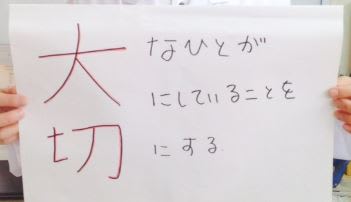 大切
なひとが
にしていることを
にする